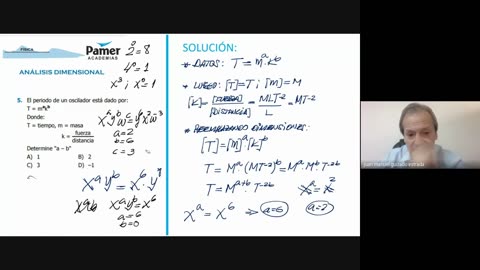 FÍSICA
Pamer
ACADEMIAS
ANÁLISIS DIMENSIONAL
2³ = 8
4⁰ = 1
x³ ; x⁰ = 1
5. El periodo de un oscilador está dado por:
T = mᵃkᵇ
Donde:
T = tiempo, m = masa
k = fuerza
distancia
Determine "a – b"
A) 1 B) 2
C) 3 D) –2
E) –1
a = 2
b = 6
c = 3
xᵃyᵇ = x⁶
a = 6
b = 0
SOLUCIÓN:
* DATOS: T = mᵃ.kᵇ
* LUEGO: [T] = T ; [m] = M
[k] = [FUERZA] / [DISTANCIA] = MLT⁻² / L = MT⁻²
* REEMPLAZANDO DIMENSIONES:
[T] = [M]ᵃ[k]ᵇ
T = Mᵃ(MT⁻²)ᵇ = Mᵃ.Mᵇ.T⁻²ᵇ
T = Mᵃ⁺ᵇ.T⁻²ᵇ
xᵃ = x⁶ ⇒ a=6
a=2
juan manuel guisado estrada